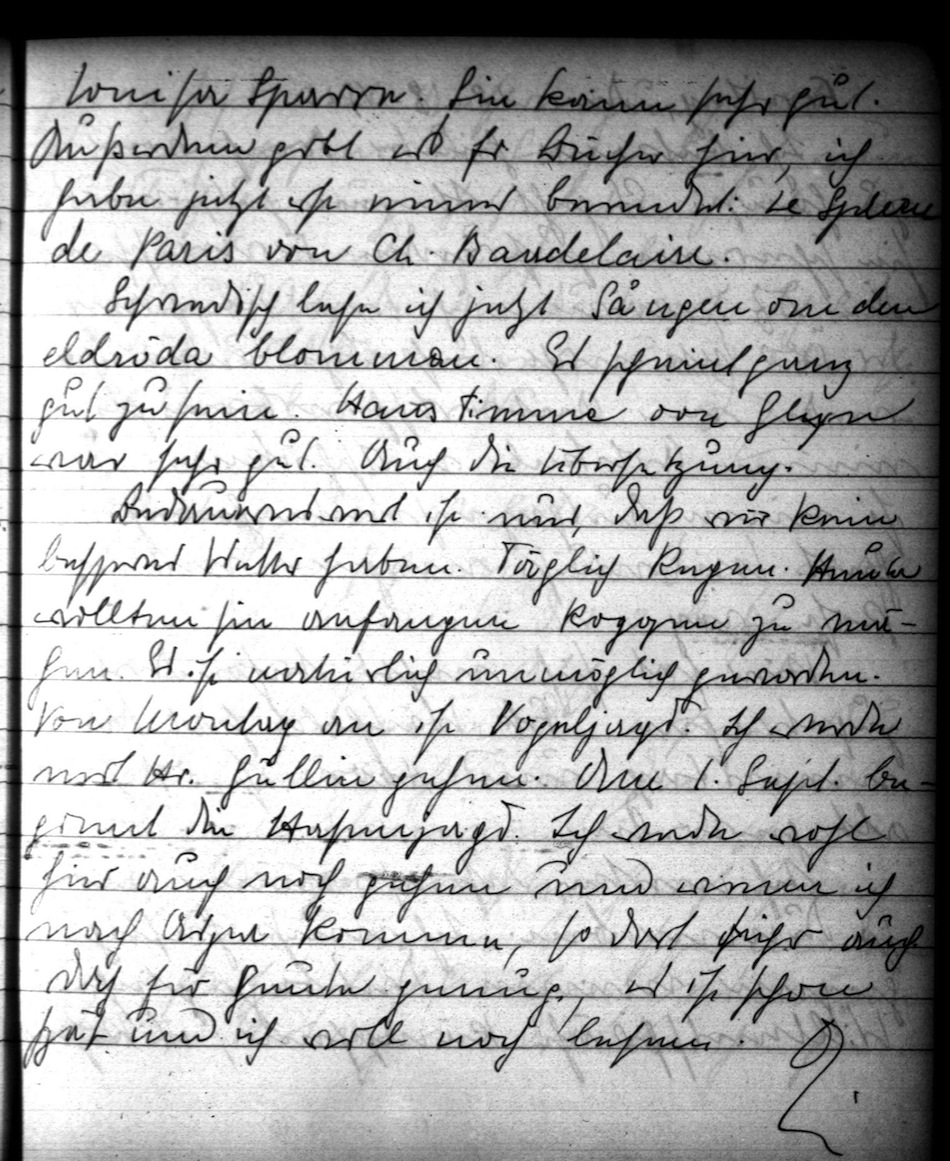 Louisa Sparre. Sie kann sehr gut.
Außerdem gibt es fr. Bücher hier, ich
habe jetzt ist eines beendet: Le Spleen
de Paris von Ch. Baudelaire.
Schwedisch lese ich jetzt Sången om den
eldröda blomman. Es scheint ganz
gut zu sein. Hans Stimme von
war sehr gut. Auch die Übersetzung.
Bedauernswert ist nur, daß wir kein
besseres Wetter haben. Täglich Regen. Heute
wollten sie anfangen Roggen zu mä-
hen. Es ist natürlich unmöglich geworden.
Von Montag an ist Vogeljagd. Ich werde
mit Hr. Gullin gehen. Am 1. Sept. be-
ginnt die Hasenjagd. Ich werde wohl
hier auch noch gehen und wenn ich
nach komme, so dort auch
für heute genug, es ist schon
spät und ich will noch lesen.